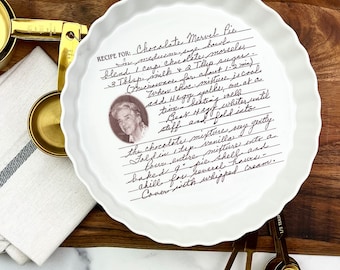 RECIPE FOR: Chocolate Marvel Pie
In medium size bowl
blend 1 cup chocolate morsels
3 Tbsp. milk & 2 Tbsp sugar
Microwave for about 1 ½ min
When choc mixture is cool
add 4 egg yolks one at a
time, beating well
Beat 4 egg whites until
stiff and fold into
the chocolate mixture very gently
Fold in 1 tsp vanilla
Pour entire mixture into a
baked 9" pie shell and
chill for several hours.
Cover with whipped cream.